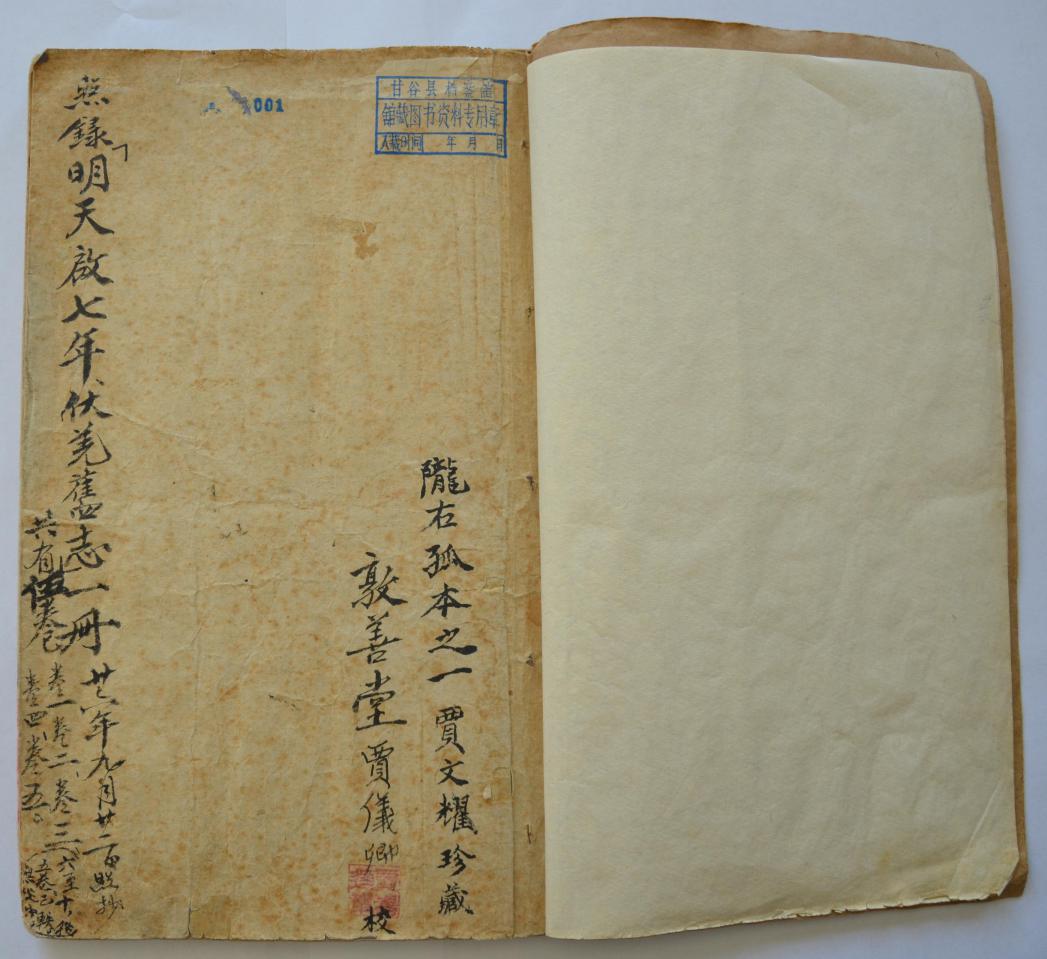 001
甘谷县档案馆
馆藏图书资料专用章
入藏时间 年 月 日
隴右孤本之一 賈文耀珍藏
敦善堂賈儀卿 校
照錄明天啟七年伏羌舊志一冊 廿六年九月廿二日照抄
共有伍卷 卷一 卷二 卷三
卷四 卷五
六至十
五卷已